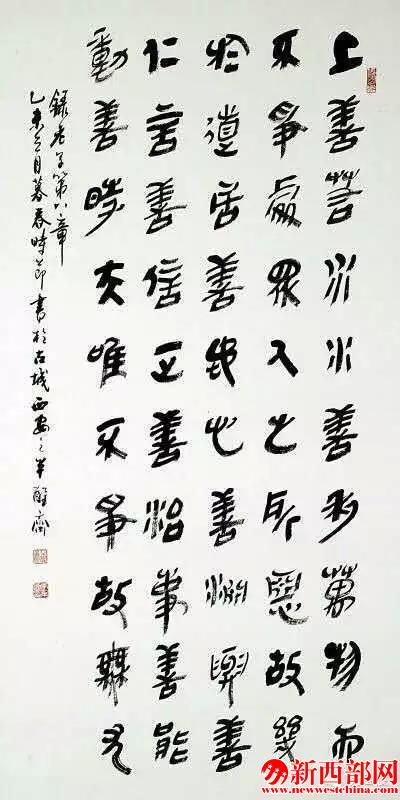 上善若水水善利萬物而
不爭處眾人之所惡故幾
於道居善地心善淵與善
仁言善信正善治事善能
動善時夫唯不爭故無尤
錄老子第八章
乙未三月暮春時節書於古城西安之半齋
新西部网
www.newwestchina.com